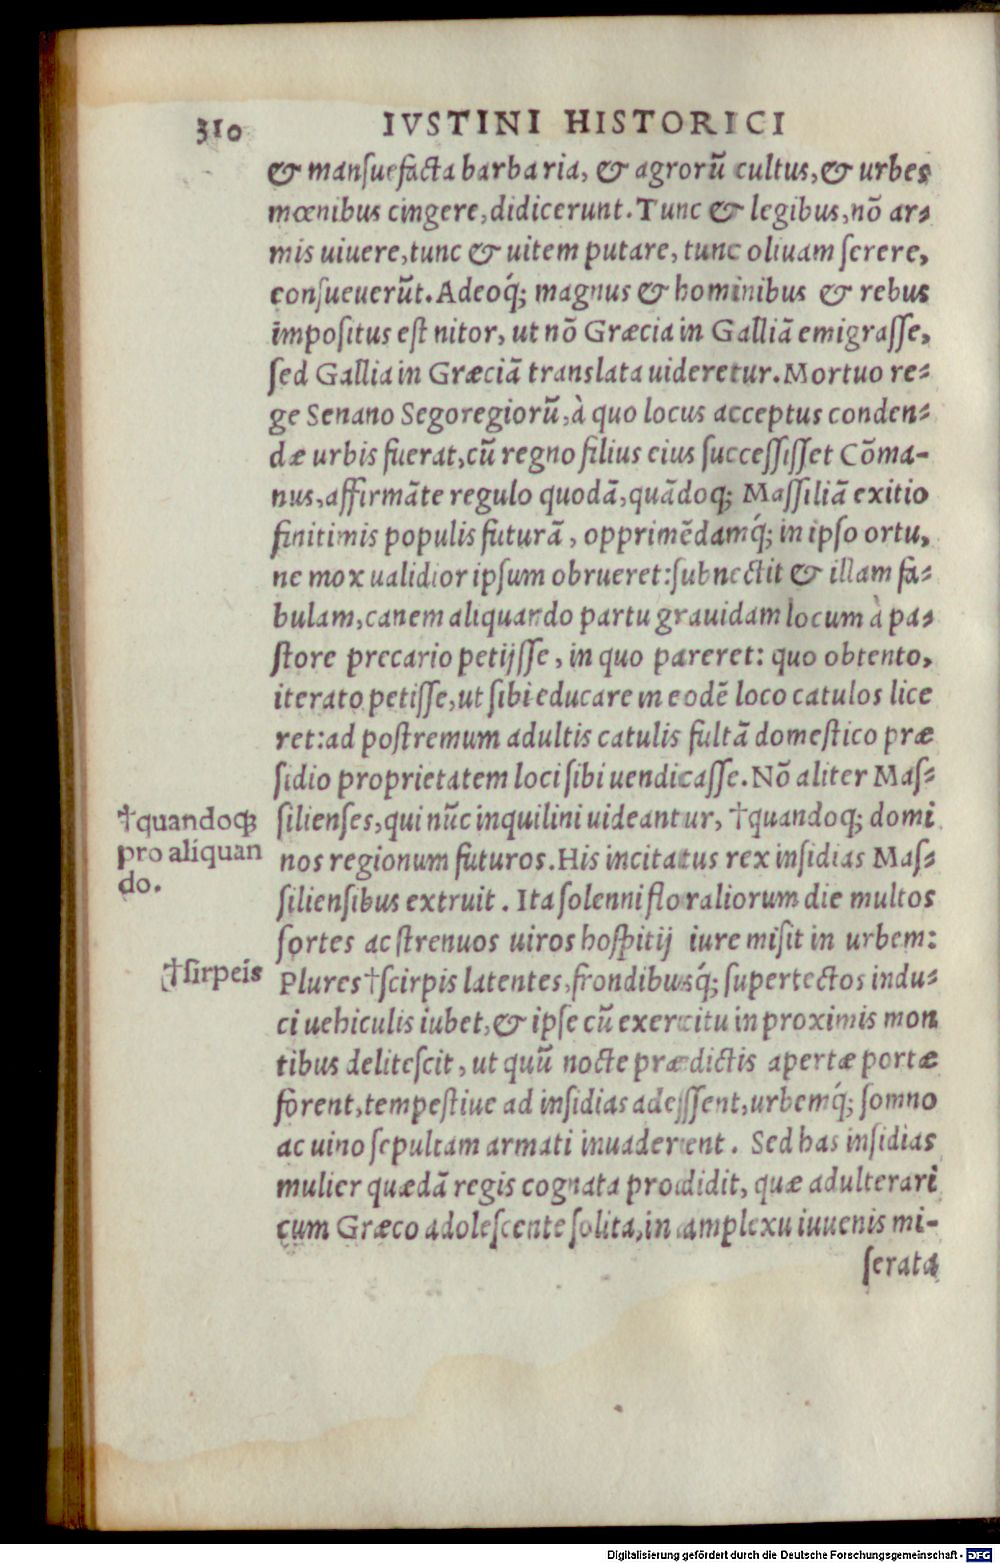 310 IVSTINI HISTORICI
& manſuefacta barbaria, & agrorū cultus, & urbes
mœnibus cingere, didicerunt. Tunc & legibus, nō ar⸗
mis uiuere, tunc & uitem putare, tunc oliuam ſerere,
conſueuerūt. Adeoq́; magnus & hominibus & rebus
impoſitus eſt nitor, ut nō Græcia in Galliā emigraſſe,
ſed Gallia in Græciā translata uideretur. Mortuo re⸗
ge Senano Segoregiorū, à quo locus acceptus conden⸗
dæ urbis fuerat, cū regno filius eius ſucceſſiſſet Cōma-
nus, affirmāte regulo quodā, quādoq; Maſſiliā exitio
finitimis populis futurā, opprimēdamq́; in ipſo ortu,
ne mox ualidior ipſum obrueret: ſubnectit & illam fa⸗
bulam, canem aliquando partu grauidam locum à pa⸗
ſtore precario petijſſe, in quo pareret: quo obtento,
iterato petiſſe, ut ſibi educare in eodē loco catulos lice
ret: ad poſtremum adultis catulis fultā domeſtico præ
ſidio proprietatem loci ſibi uendicaſſe. Nō aliter Maſ⸗
ſilienſes, qui nūc inquilini uideantur, †quandoq; domi
nos regionum futuros. His incitatus rex inſidias Maſ⸗
ſilienſibus extruit. Ita ſolenni floraliorum die multos
fortes ac ſtrenuos uiros hoſpitij iure miſit in urbem:
Plures †ſcirpis latentes, frondibusq́; ſupertectos indu⸗
ci uehiculis iubet, & ipſe cū exercitu in proximis mon
tibus deliteſcit, ut quū nocte prædictis apertæ portæ
forent, tempeſtiue ad inſidias adeſſent, urbemq́; ſomno
ac uino ſepultam armati inuaderent. Sed has inſidias
mulier quædā regis cognata prodidit, quæ adulterari
cum Græco adoleſcente ſolita, in amplexu iuuenis mi-
ſerata
†quandoq;
pro aliquan
do.
†ſirpeis
Digitalisierung gefördert durch die Deutsche Forschungsgemeinschaft - DFG